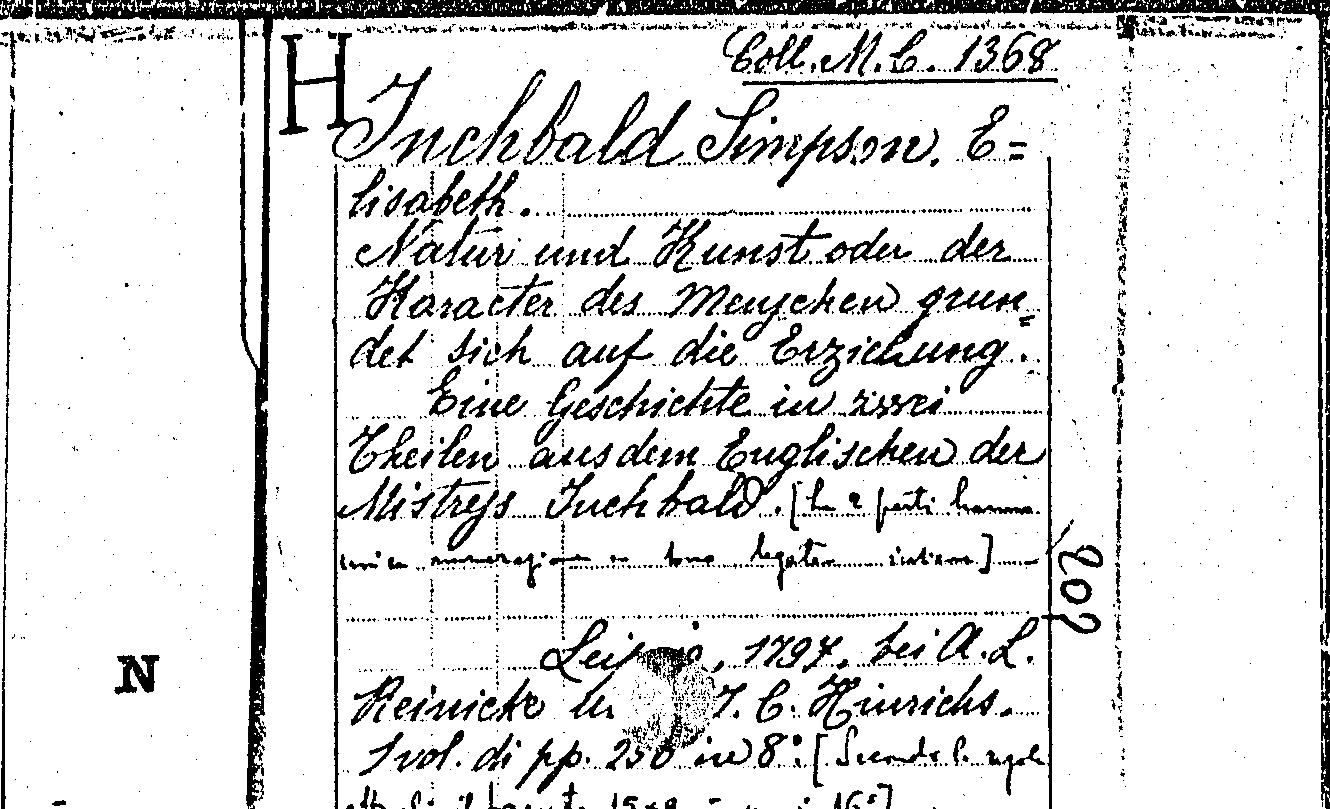 H
Coll. M. C. 1368
Inchbald Simpson, E=
lisabeth.
Natur und Kunst oder der
Karacter des Menschen grun=
det sich auf die Erziehung.
Eine Geschichte in zwei
Theilen aus dem Englischen der
Mistress Inchbald. [Le 2 parti hanno
numerazione legate insieme]
1797, bei A. L.
Reinicke J. C. Hinrichs.
1 vol. di pp. 250 in 8º. [Secondo le
16º]
N